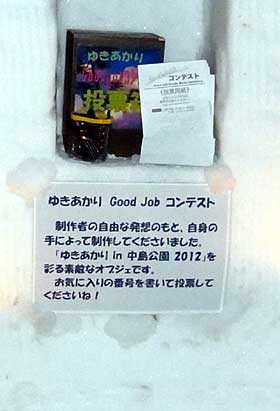 ゆきあかり
Good Job
投票
コンテスト
《投票用紙》
ゆきあかり Good Job コンテスト
制作者の自由な発想のもと、自身の
手によって制作してくださいました。
「ゆきあかり in 中島公園 2012」を
彩る素敵なオブジェです。
お気に入りの番号を書いて投票して
くださいね！